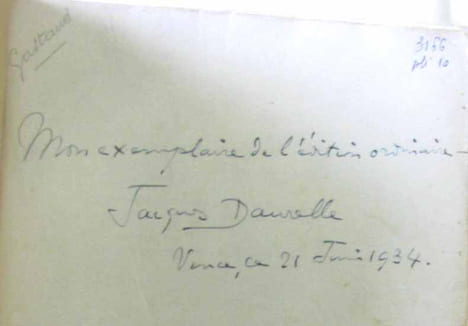 Gastaud
3166
pli 10
Mon exemplaire de l'édition ordinaire -
Jacques Daurelle
Vence, ce 21 Juin 1934.